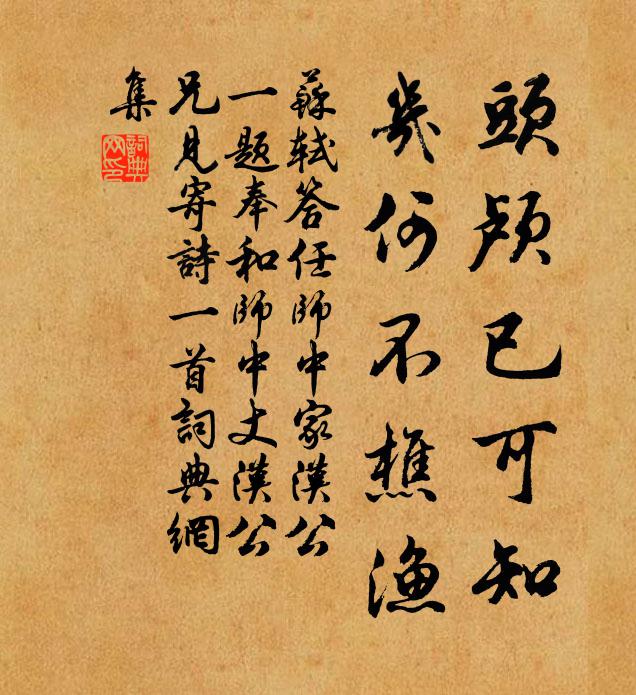 頭顱已可知
幾何不樵漁
蘇軾答任師中家漢公
一題奉和師中丈漢公
兄見寄詩一首詞典網
集
詞典
网印